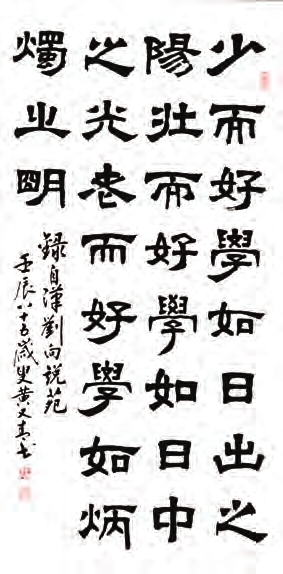 少而好學如日出之
陽壯而好學如日中
之光老而好學如炳
燭之明
錄自漢劉向說苑
壬辰八十五歲叟黃文書